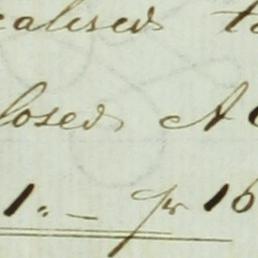 ealised to
losed A
1. — pr 16